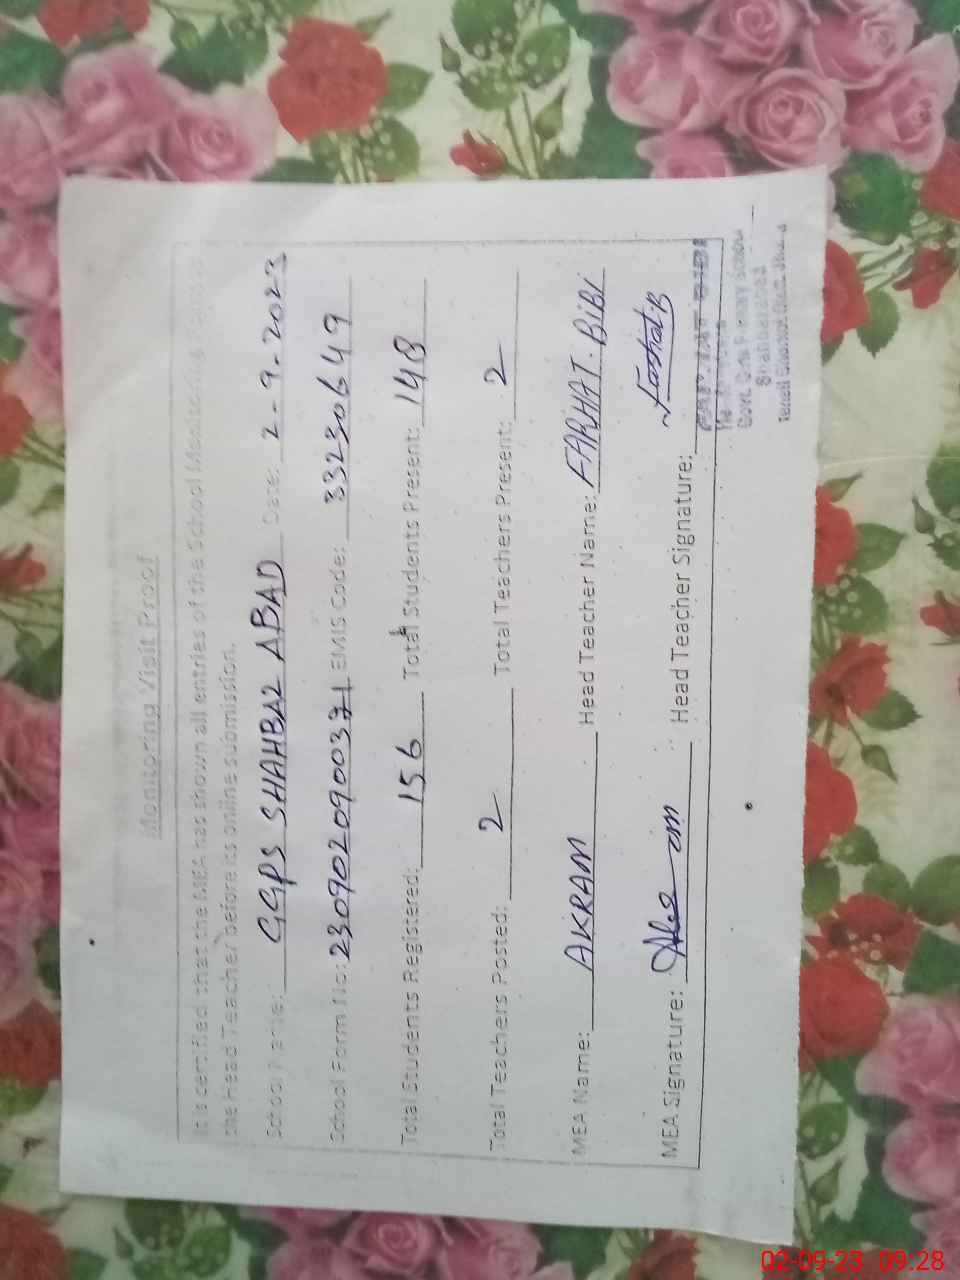 Monitoring Visit Proof
It is certified that the MEA has shown all entries of the School Monitoring
the Head Teacher before its online submission.
School Name: GGPS SHAHBAZ ABAD Date: 2-9-2023
School Form No: 2309020900371 EMIS Code: 33230649
Total Students Registered: 156 Total Students Present: 148
Total Teachers Posted: 2 Total Teachers Present: 2
MEA Name: AKRAM Head Teacher Name: FARHAT.BiBi
MEA Signature: Head Teacher Signature: Farhat.B
Govt. Girls Primary School
Shahbazabad
02-09-23 09:28